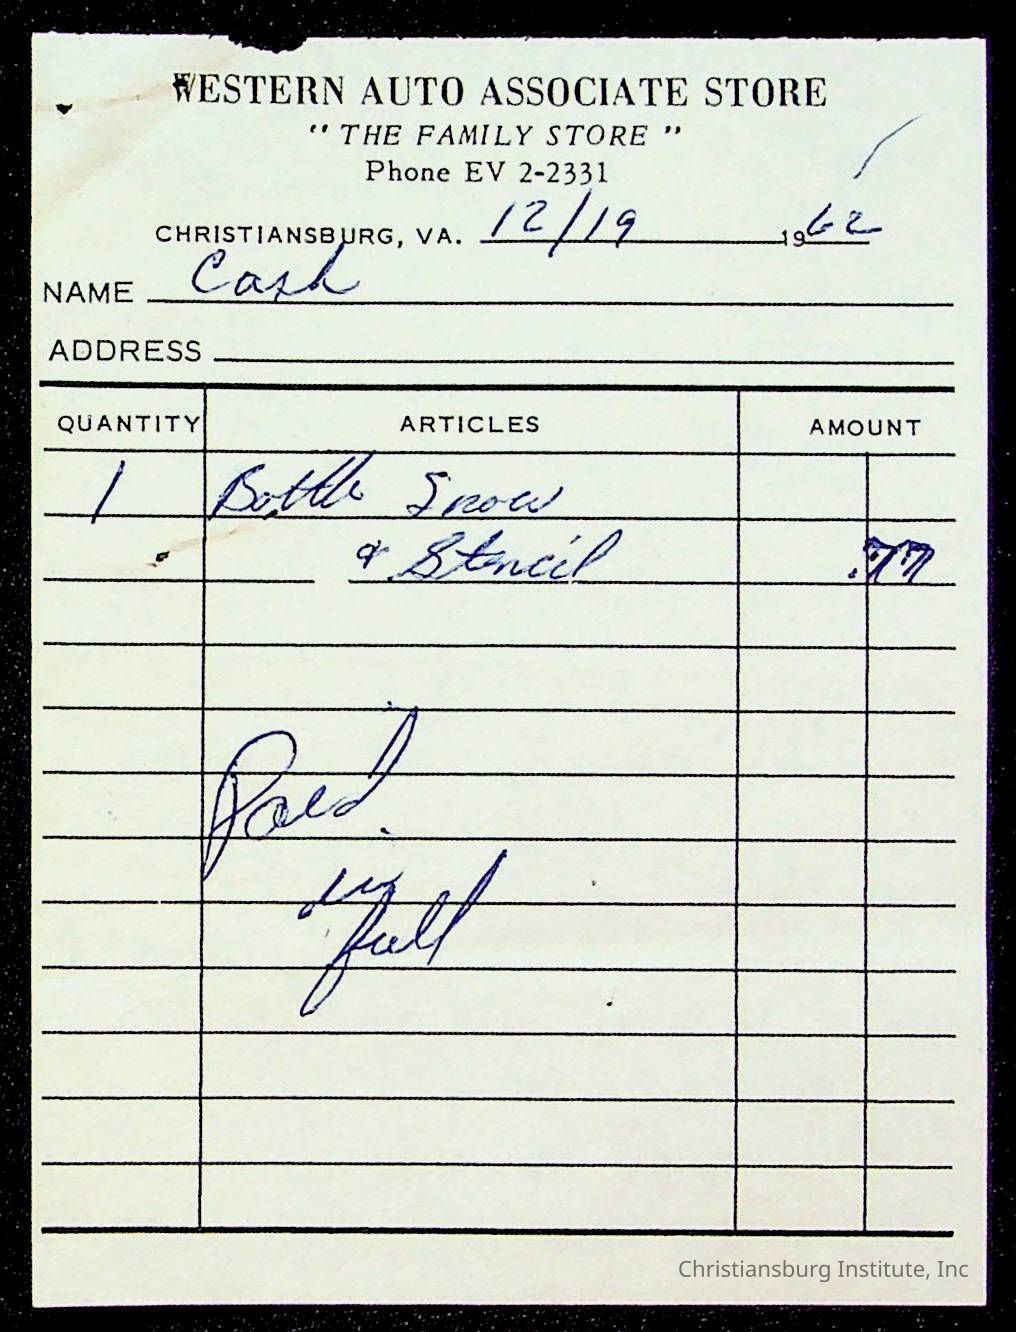 WESTERN AUTO ASSOCIATE STORE
" THE FAMILY STORE "
Phone EV 2-2331
CHRISTIANSBURG, VA. 12/19 1962
NAME Cash
ADDRESS
QUANTITY ARTICLES AMOUNT
1 Bottle Snow
& Stencil .77
Paid
in
full
Christiansburg Institute, Inc